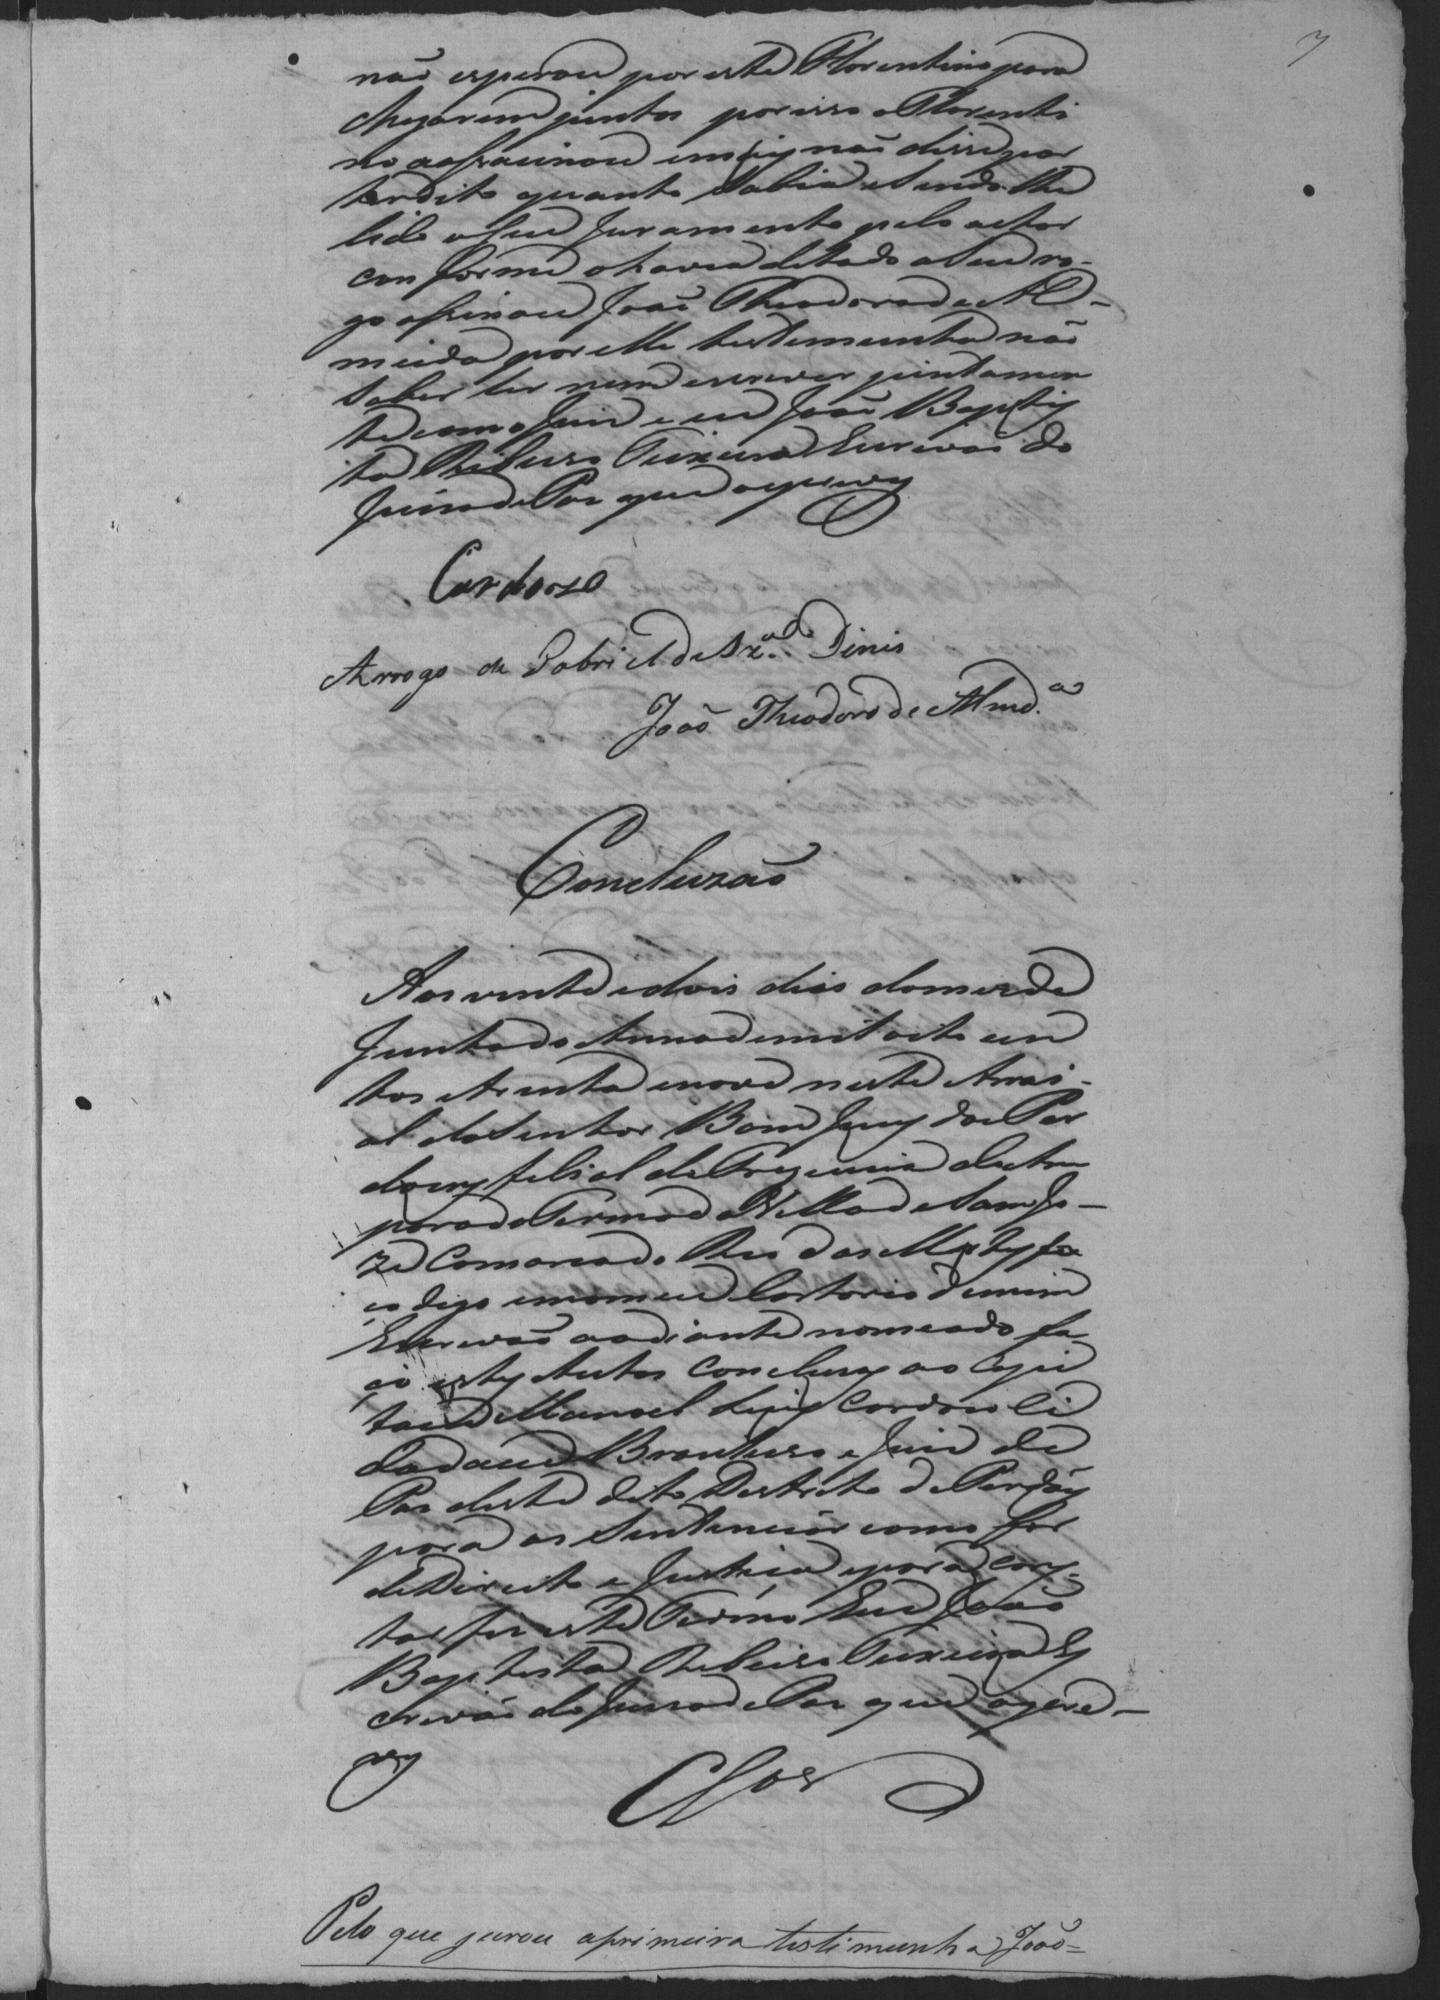 7
não esperou por este Florentino para
chegarem juntos por isso o Florenti
no o assacinou emfiz não disse por
ter dito quanto Sabia e Sendo lhe
lido o seu Juramento pelo achar
conforme o havia ditado a Seu ro-
go assinou João Theodoro de Al-
meida por elle testemunha não
Saber ler nem escrever juntamen
te com o Juiz e eu João Baptis
ta Ribeiro Teixeira Escrivão do
Juizo de Paz que o escrevy
Cardoso
Arrogo de Gabriel de Dinis
João Theodoro de Almd.ª
Concluzão
Aos vinte e dois dias do mez de
Junho do Anno de mil oito cen
tos e trenta e nove neste Arrai-
al do Senhor Bom Jesus dos Per
doens filial da Freguesia
para do Termo da Villa de Sam Jo-
ze Comarca do Rio das Mortes fa
ço digo em o meu Cartorio de mim
Escrivão ao diante nomeado fa-
ço estes Autos concluzos ao Capi
tam Manoel Luis Cardoso Ci
dadam Brazileiro e Juiz de
Paz deste dito Destricto de Perdões
para os Sentenciar como for
de Direito e Justiça e para cons-
tar fiz este Termo Eu João
Baptista Ribeiro Teixeira Es
crivão do Juizo de Paz que o escre-
vy
Clos
Pelo que jurou aprimeira testimunha João=